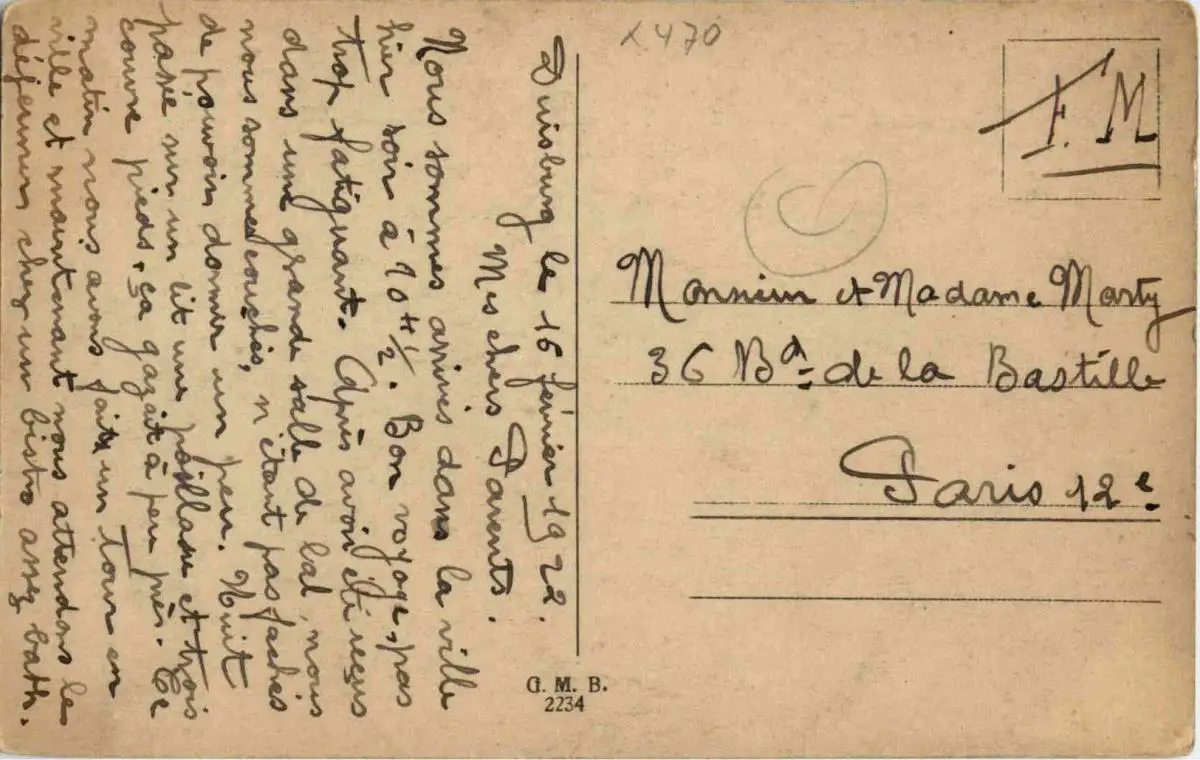 Duisburg le 16 février 1922.
Mes chers Parents.
Nous sommes arrivés dans la ville
hier soir à 10 H 1/2. Bon voyage, pas
trop fatiguant. Après avoir été reçus
dans une grande salle de bal, nous
nous sommes couchés, n'étant pas fachés
de pouvoir dormir un peu. Nuit
passée sur un lit une paillasse et trois
couvre pieds, ça gazait à peu près. Ce
matin nous avons fait un tour en
ville et maintenant nous attendons le
déjeuner chez un bistro assez bath.
G. M. B.
2234
470
F. M
Monsieur et Madame Marty
36 Bd de la Bastille
Paris 12e.